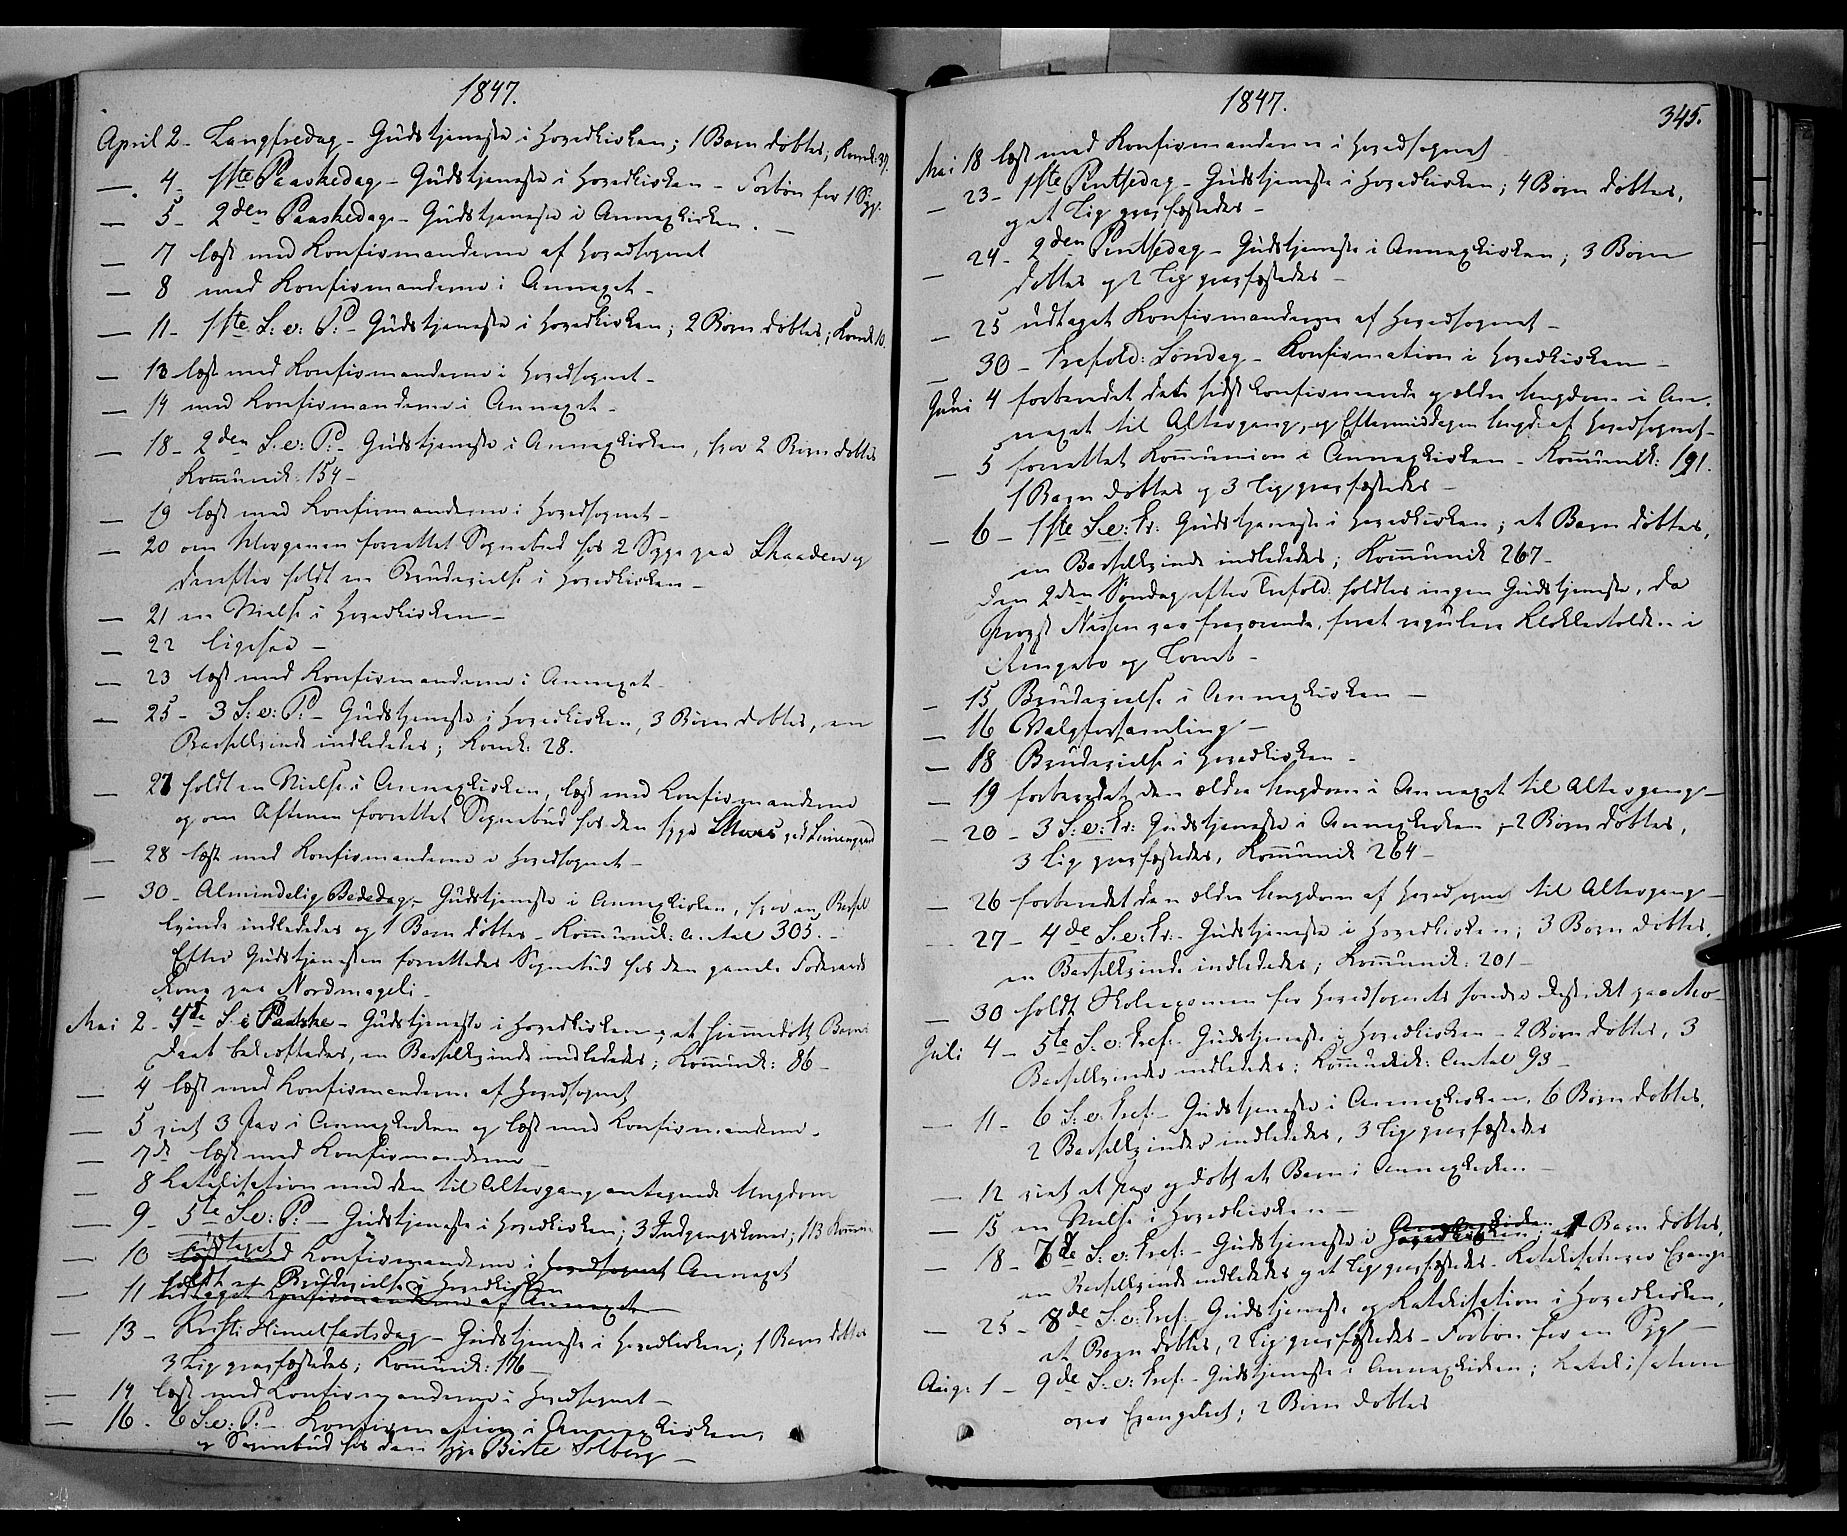 1847.
April 2 - Langfredag - Gudstjeneste i Hovedkirken; 1 Barn døbtes; Komk: 37.
— 4 - 1ste Paaskedag - Gudstjeneste i Hovedkirken - Forbøn for 1 Syg.
— 5 - 2den Paaskedag - Gudstjeneste i Annexkirken. —
— 7 læst med Konfirmanderne af Hovedsognet
— 8 med Konfirmanderne i Annexet -
— 11 - 1ste S: e: P: - Gudstjeneste i Hovedkirken; 2 Børn døbtes; Komk 10.
— 13 læst med Konfirmanderne i Hovedsognet -
— 14 med Konfirmanderne i Annexet -
— 18 - 2den S: e: P: - Gudstjeneste i Annexkirken, hvor 2 Børn døbtes
Kommunik: 154 -
— 19 læst med Konfirmanderne i Hovedsognet -
— 20 om Morgenen forrettet Sognebud hos 2 Syge paa og
derefter holdt en Brudevielse i Hovedkirken -
— 21 en Vielse i Hovedkirken -
— 22 ligesaa -
— 23 læst med Konfirmanderne i Annexet -
— 25 - 3 S: e: P: - Gudstjeneste i Hovedkirken, 3 Børn døbtes, en
Barselkvinde indlededes; Komk: 28.
— 27 holdt en Vielse i Annexkirken, læst med Konfirmanderne
og om Aftenen forrettet Sognebud hos den syge
— 28 læst med Konfirmanderne i Hovedsognet -
— 30 - Almindelig Bededag - Gudstjeneste i Annexkirken, hvor en Barsel
kvinde indlededes og 1 Barn døbtes - Kommunik: Antal 305. -
Efter Gudstjenesten forrettedes Sognebud hos den gamle Foderaads
Kone paa Nordmageli -
Mai 2 - 4de S. e Paaske - Gudstjeneste i Hovedkirken, et hjemmedøbt Barns
Daab bekræftedes, en Barselkvinde indlededes; Kommunik: 86 -
— 4 læst med Konfirmanderne af Hovedsognet
— 5 viet 3 Par i Annexkirken og læst med Konfirmanderne.
— 7de læst med Konfirmanderne
— 8 Katekisation med den til Altergang antegnede Ungdom
— 9 - 5te S: e: P: - Gudstjeneste i Hovedkirken; 3 Indgangskoner; 113 Kommun
— 10 udtaget Konfirmanderne i Hovedsognet Annexet
— 11 holdt en Brudevielse i Hovedkirken
udtaget Konfirmanderne af Annexet
— 13 - Kristi Himelfartsdag - Gudstjeneste i Hovedkirken; 1 Barn døbtes
3 Lig gravfæstedes; Kommunik: 176 -
— 14 læst med Konfirmanderne i Hovedsognet -
— 16 - 6 S: e: P: - Konfirmation i Annexkirken,
og Sognebud hos den syge Birte Solberg -
1847.
345.
Mai 18 læst med Konfirmanderne i Hovedsognet
— 23 - 1ste Pintsedag - Gudstjeneste i Hovedkirken; 4 Børn døbtes,
og et Lig gravfæstedes -
— 24 - 2den Pintsedag - Gudstjeneste i Annexkirken; 3 Børn
døbtes og 2 Lig gravfæstedes -
— 25 udtaget Konfirmanderne af Hovedsognet -
— 30 - Trefold: Søndag - Konfirmation i Hovedkirken -
Juni 4 forberedet de sidst Konfirmerede og ældre Ungdom i An-
nexet til Altergang, og Eftermiddagen Ungd: af Hovedsognet -
— 5 forrettet Kommunion i Annexkirken - Kommunik: 191.
1 Barn døbtes og 3 Lig gravfæstedes -
— 6 - 1ste S: e: Tr: Gudstjeneste i Hovedkirken; et Barn døbtes,
en Barselkvinde indlededes; Kommunik 267 -
Den 2den Søndag efter Trefold. holdtes ingen Gudstjeneste, da
Provst Nissen var fraværende, for at regulere i
Ringebo og
— 15 Brudevielse i Annexkirken —
— 16 Valgforsamling -
— 18 Brudevielse i Hovedkirken -
— 19 forberedet den ældre Ungdom i Annexet til Altergang -
— 20 - 3 S: e: Tr: Gudstjeneste i Annexkirken; 2 Børn døbtes,
3 Lig gravfæstedes, Kommunik 264 -
— 26 forberedet den ældre Ungdom af Hovedsognet til Altergang -
— 27 - 4de S. e: Tr: - Gudstjeneste i Hovedkirken; 3 Børn døbtes,
en Barselkvinde indlededes; Kommunik: 201 -
— 30 holdt Skoleexamen for Hovedsognets søndre Distrikt paa
Juli 4 - 5te S. e: Tref: - Gudstjeneste i Hovedkirken - 2 Børn døbtes, 3
Barselkvinder indlededes; Kommunik: Antal 93 -
— 11 - 6 S. e: Tref: - Gudstjeneste i Annexkirken. 6 Børn døbtes,
2 Barselkvinder indlededes, 3 Lig gravfæstedes
— 12 viet et Par og døbt et Barn i Annexkirken -
— 15 en Vielse i Hovedkirken -
— 18 - 7de S: e: Tref: - Gudstjeneste i Annexkirken, 1 Barn døbtes,
en Barselkvinde indlededes og et Lig gravfæstedes - Katekisation over Evange
— 25 - 8de S. e: Tref: Gudstjeneste og Katekisation i Hovedkirken,
et Barn døbtes, 2 Lig gravfæstedes - Forbøn for en Syg -
Aug: 1 - 9de S. e: Tref: - Gudstjeneste i Annexkirken; Katekisation
over Evangeliet; 2 Børn døbtes